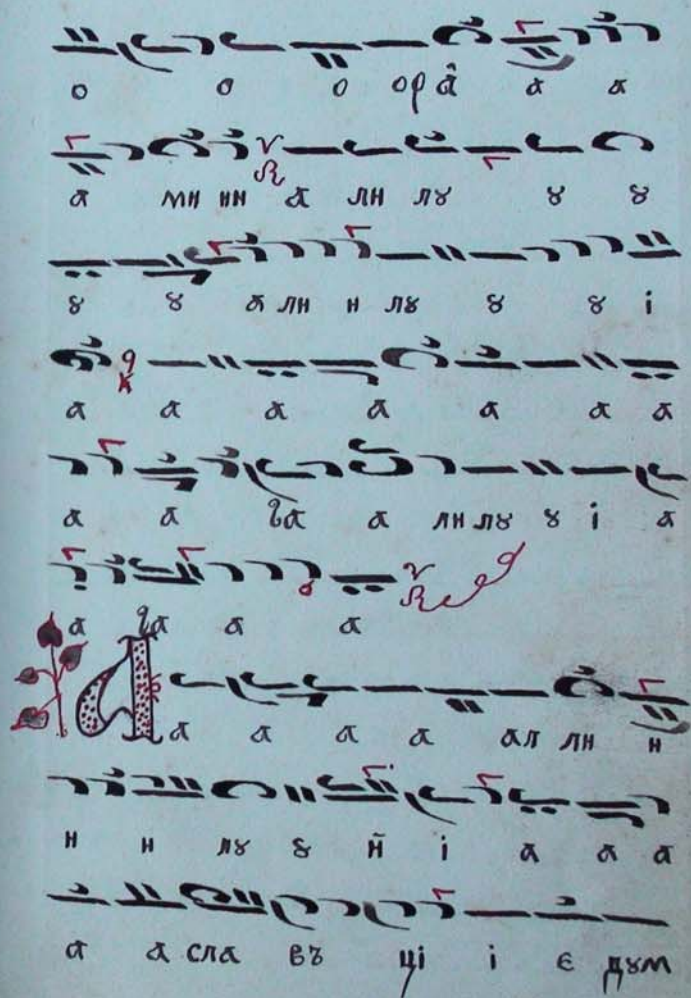 о о о ора а а
а ми ии а ли лꙋ ꙋ ꙋ
ꙋ ꙋ а ли и лꙋ ꙋ ꙋ і
а а а а а а а
а а га а ли лꙋ ꙋ і а
а га а а
А а а а а ал ли и
и и лꙋ ꙋ й і а а а
а а сла въ ці і є дꙋм